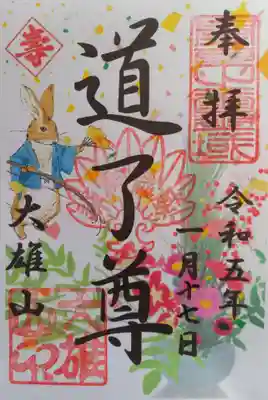 奉拝
令和五年
一月十七日
道了尊
大雄山